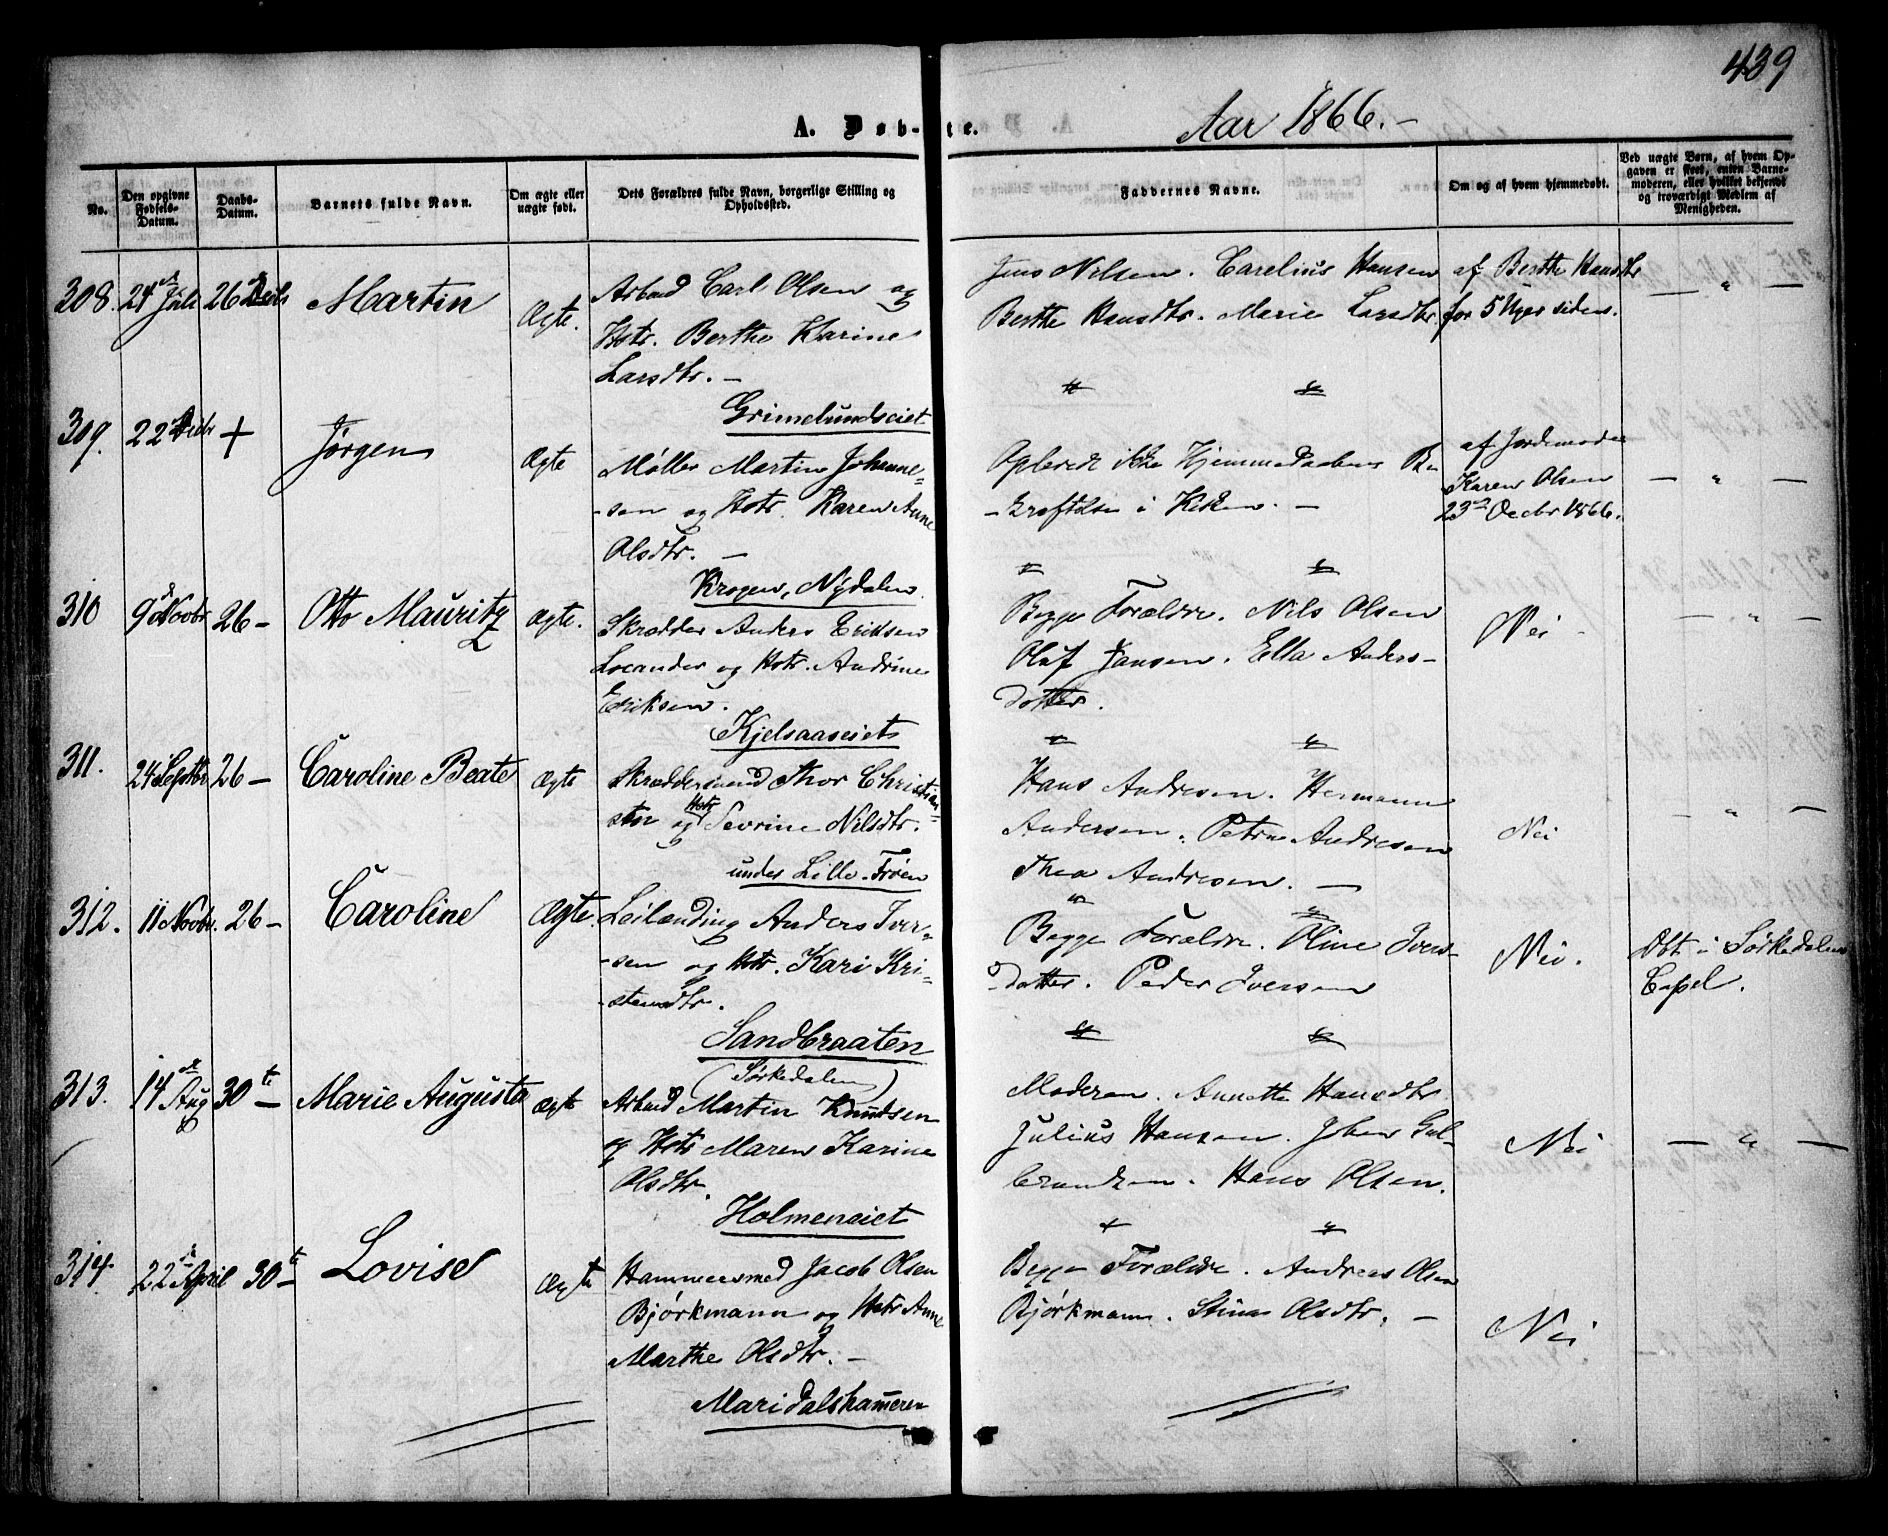 439
A. Døb-te.
Aar 1866.-
No.
Den opgivne Fødsels-Datum.
Daabs-Datum.
Barnets fulde Navn.
Om ægte eller uægte født.
Dets Forældres fulde Navn, borgerlige Stilling og Opholdssted.
Faddernes Navne.
Om og af hvem hjemmedøbt.
Ved uægte Børn, af hvem Opgaven er skeet, enten Barnemoderen, eller hvilket bekjendt og troværdigt Medlem af Menigheden.
308. 24d Juli 26d Decbr Martin Ægte.
Arbmd Carl Olsen og
Hstr. Berthe Karine
Larsdtr. -
Grimelundseiet
Jens Nilsen. Carelius Hansen
Berthe Hansdtr. Marie Larsdtr
af Berthe Hansdtr
for 5 Uger siden.
— " —
309. 22 Decbr + Jørgen Ægte
Møller Martin Johanne-
-sen og Hstr. Karen Anne
Olsdtr. —
Krogen, Nydalen
Oplevede ikke Hjemmedaabens Be
-kræftelse i Kirken. —
af Jordemoder
Karen Olsen
23d Decbr 1866.
— " —
310 9d Novbr 26 - Otto Mauritz Ægte.
Skrædder Anders Eriksen
Locander og Hstr. Andrine
Eriksen.
Kjelsaaseiet
Begge Forældre. Nils Olsen
Oluf Jansen. Ella Anders-
datter.
Nei -
— " —
311. 24 Septbr 26 — Caroline Beate Ægte
Skræddersvend Thor Christian-
sen og Hstr Sevrine Nilsdtr.
under Lille-Frøen
Hans Andresen. Hermann
Andersen. Petra Andresen
Thea Andresen. —
Nei
— " —
312. 11 Novbr. 26 - Caroline Ægte.
Leilænding Anders Iver-
-sen og Hstr. Kari Kri-
-stensdtr.
Sandbraaten
(Sørkedalen)
Begge Forældre. Oline Ivers-
datter. Peder Iversen
Nei.
Dbt i Sørkedalens
Capel.
313. 14d Aug 30te — Marie Augusta Ægte
Arbmd Martin Knudsen
og Hstr Maren Karine
Olsdtr.
Holmeneiet
Moderen. Annette Hansdtr.
Julius Hansen. Johan Gul-
brandsen. Hans Olsen.
Nei
— " —
314. 22d April 30te - Lovise Ægte
Hammersmed Jacob Olsen
Bjørkmann og Hstr Anne
Marthe Olsdtr. —
Maridalshammeren
Begge Forældre. Andreas Olsen
Bjørkmann. Stina Olsdtr. —
Nei